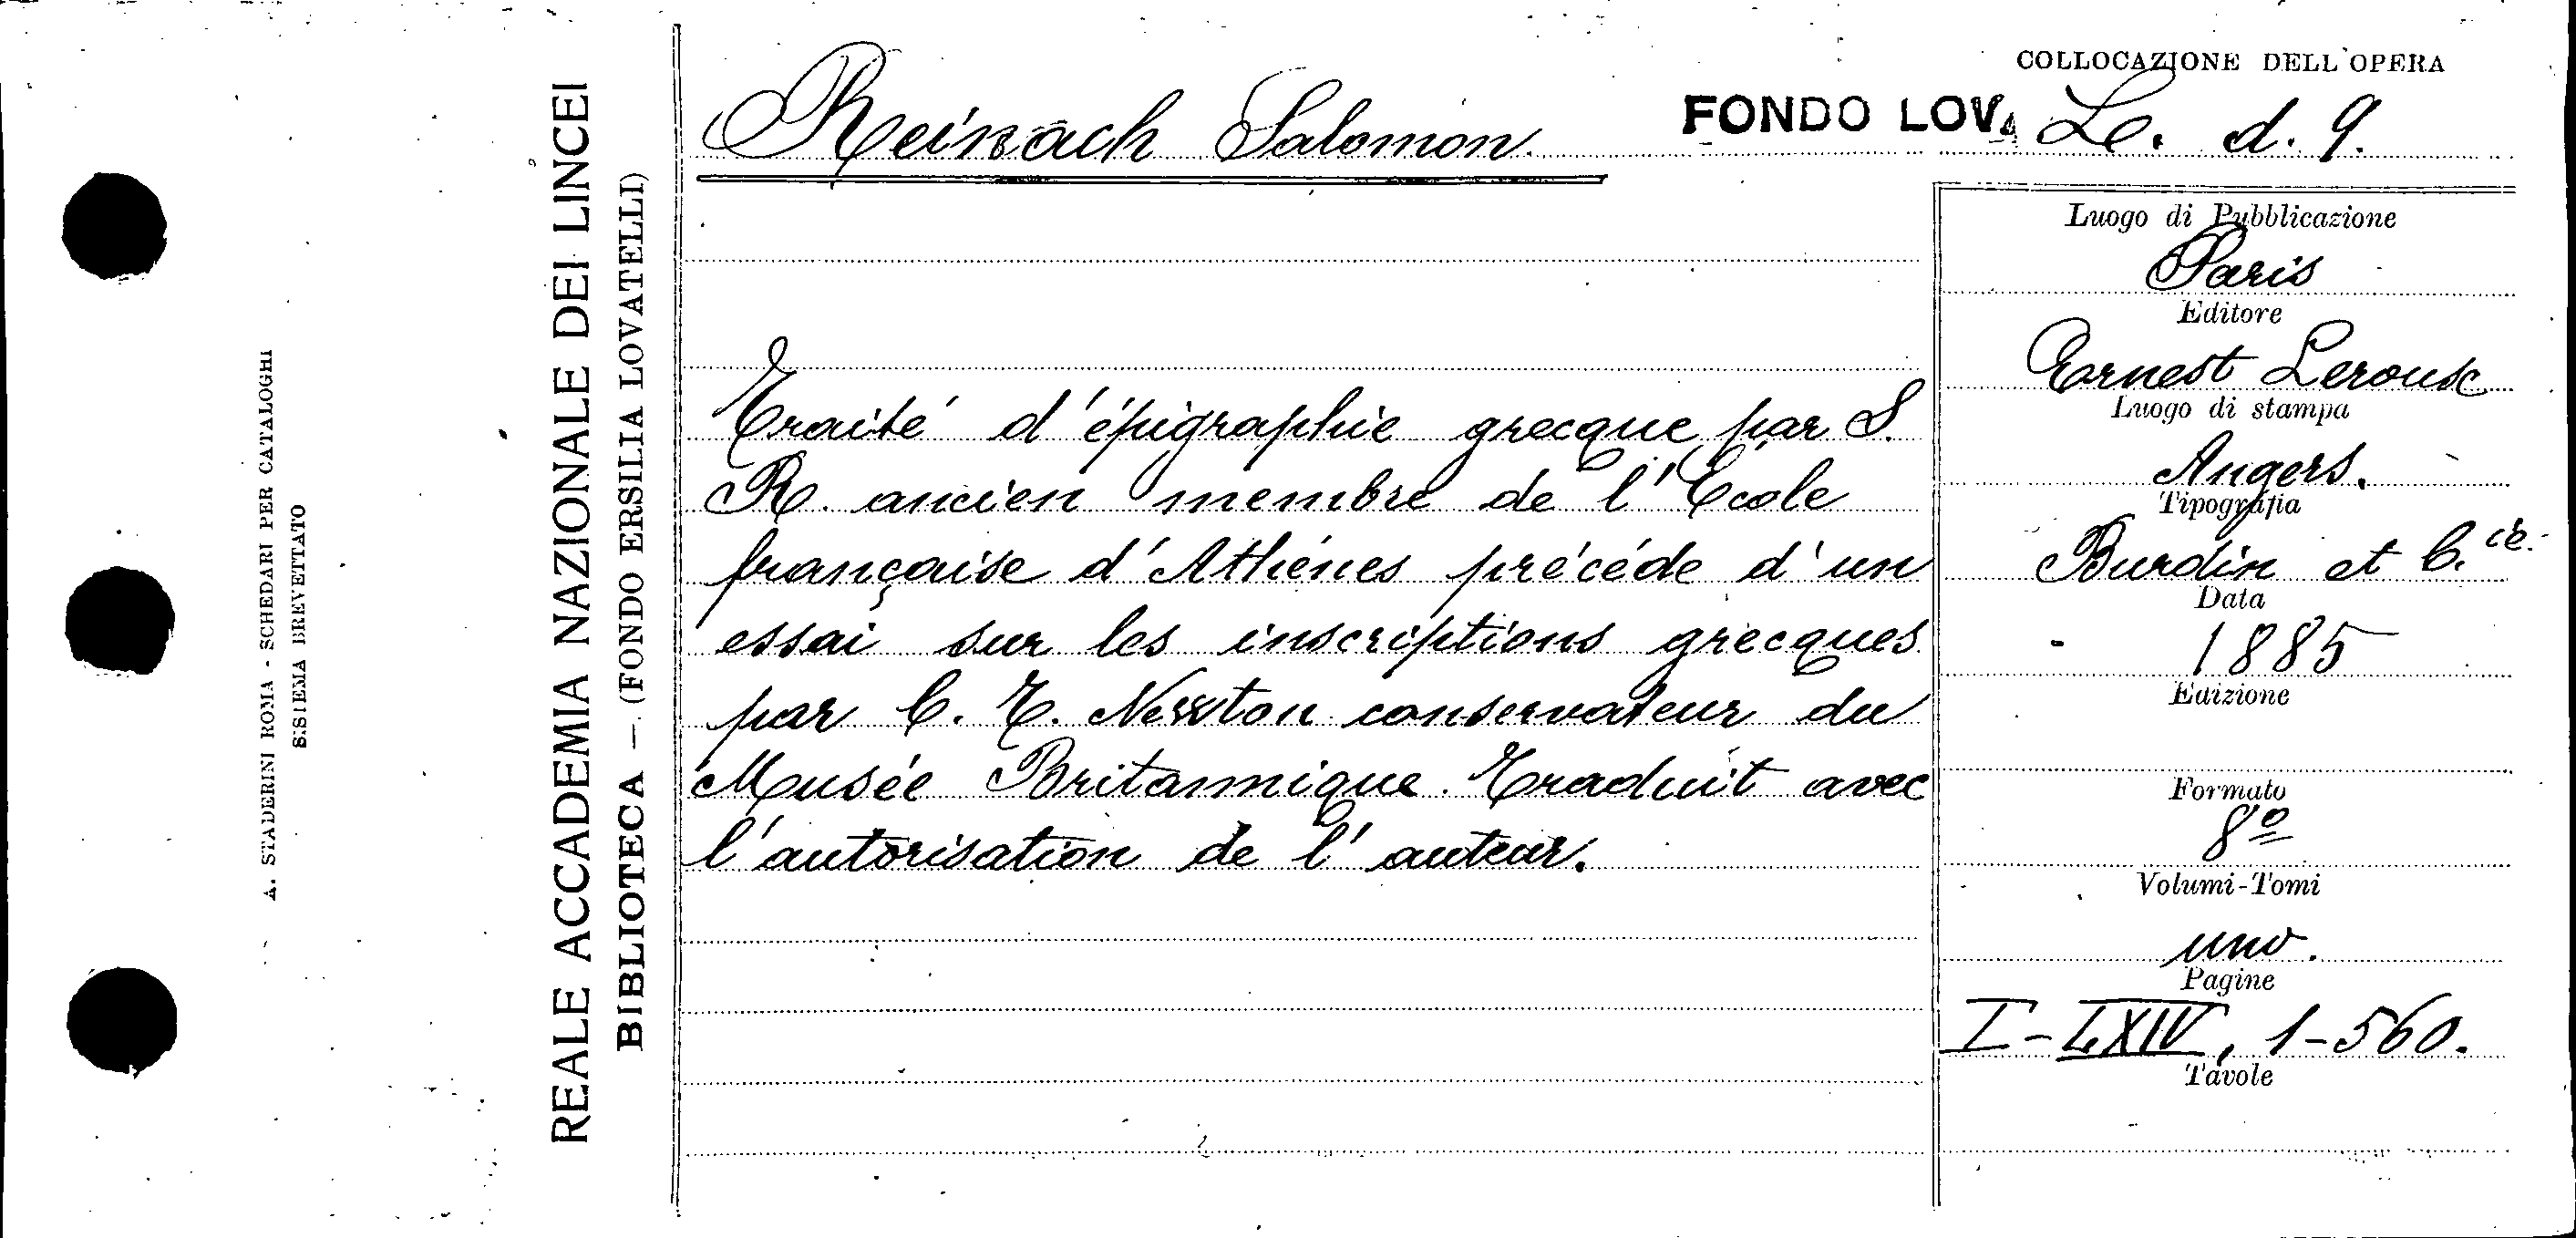 A. STADERINI ROMA - SCHEDARI PER CATALOGHI
SISIEMA BREVETTATO
REALE ACCADEMIA NAZIONALE DEI LINCEI
BIBLIOTECA — (FONDO ERSILIA LOVATELLI)
Reinach Salomon.
COLLOCAZIONE DELL'OPERA
FONDO LOV. Le. d. 9.
Traité d'épigraphie grecque par S.
R. ancien membre de l'École
française d'Athénes précéde d'un
essai sur les inscriptions grecques
par C. T. Newton conservateur du
Musée Britannique. Traduit avec
l'autorisation de l'auteur.
Luogo di Pubblicazione
Paris
Editore
Ernest Leroux
Luogo di stampa
Angers.
Tipografia
Burdin et C.ie.
Data
1885
Edizione
Formato
8º
Volumi-Tomi
uno.
Pagine
I-LXIV, 1-560.
Tavole